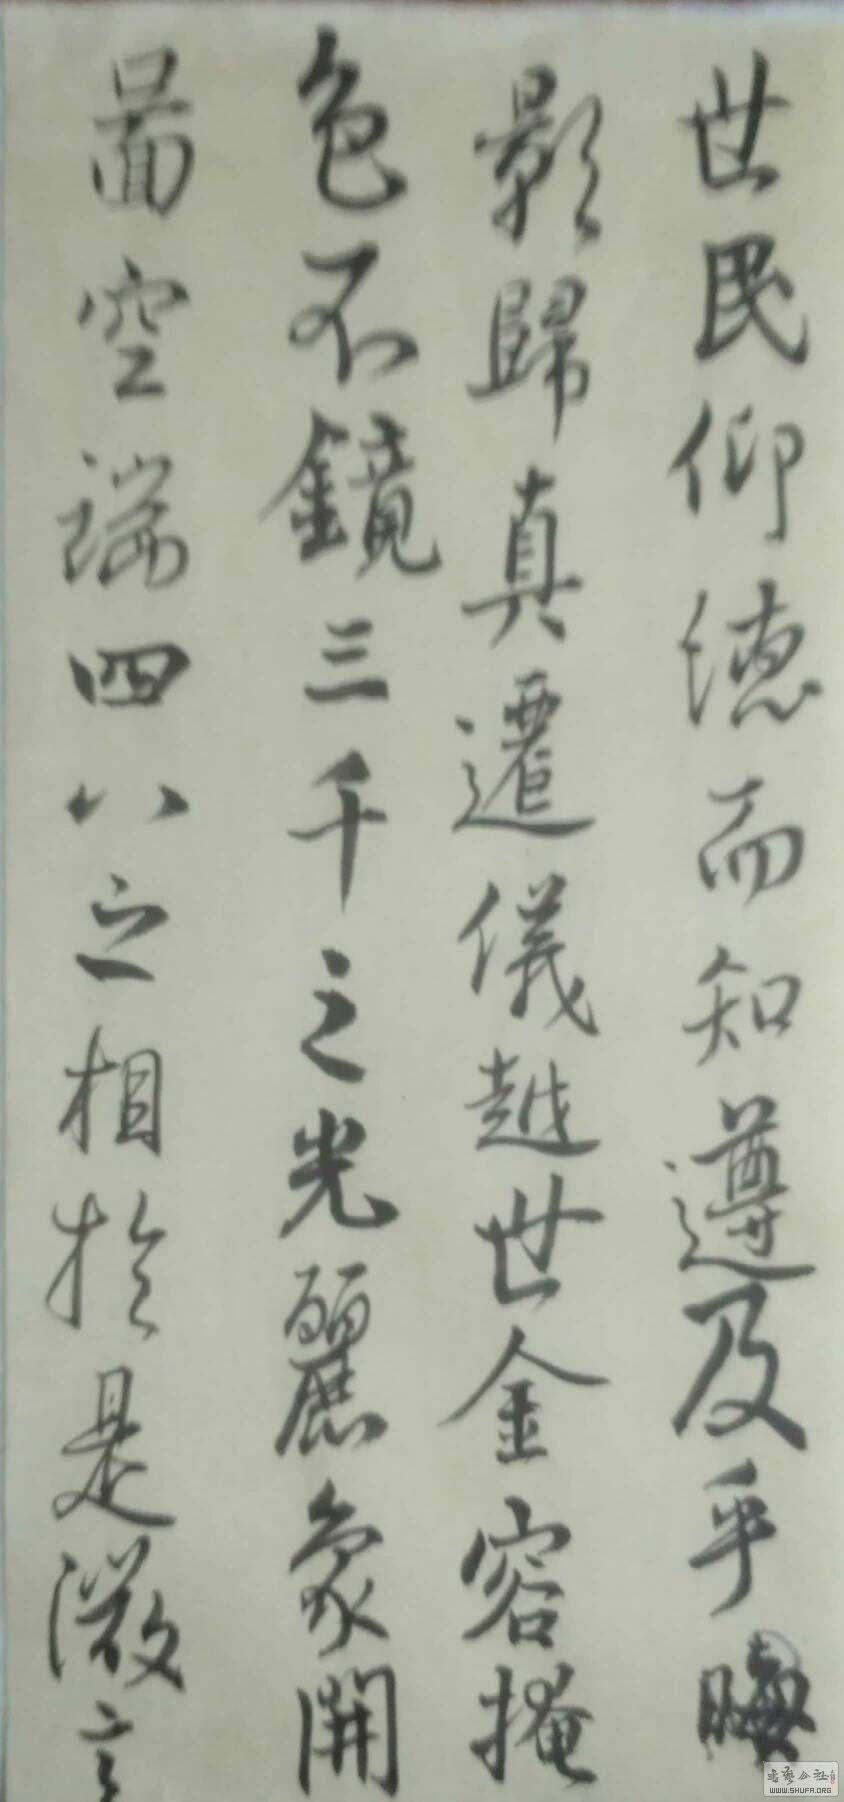 世民仰德而知遵及乎晦
影歸真遷儀越世金容掩
色不鏡三千之光麗象開
啚空端四八之相於是微言
书艺公社
WWW.SHUFA.ORG